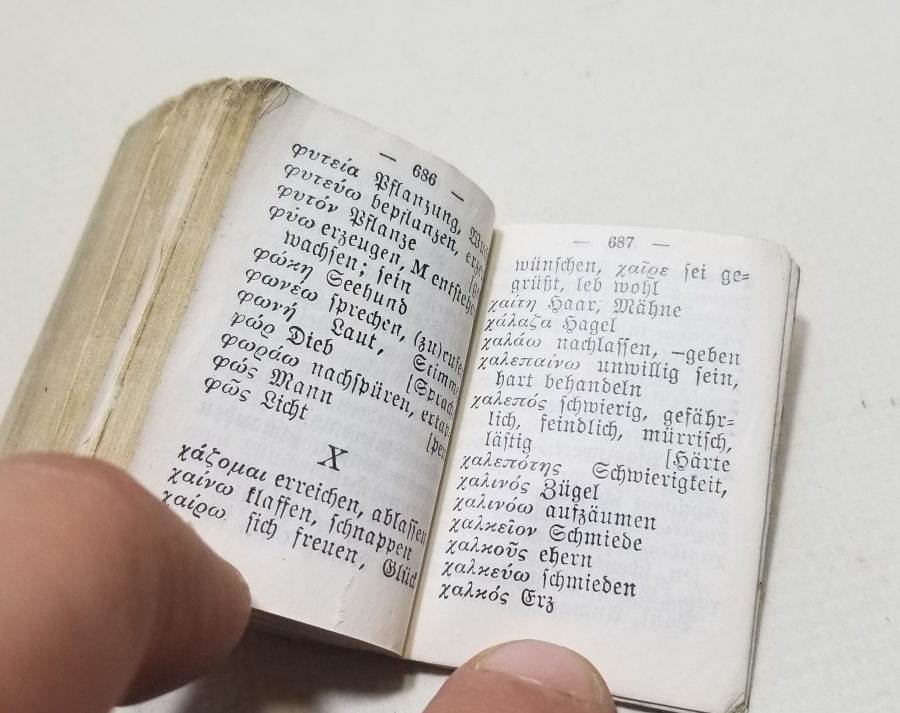 — 686 —
φυτεία Pflanzung,
φυτεύω bepflanzen,
φυτόν Pflanze
φύω erzeugen, M entstehen
wachsen; sein
φώκη Seehund
φωνέω sprechen, (zu)rufen
φωνή Laut, Stimme
φώρ Dieb
φωράω nachspüren,
φώς Mann
φῶς Licht
X
χάζομαι erreichen, ablassen
χαίνω klaffen, schnappen
χαίρω sich freuen, Glück
— 687 —
wünschen, χαῖρε sei ge=
grüßt, leb wohl
χαίτη Haar, Mähne
χάλαζα Hagel
χαλάω nachlassen, —geben
χαλεπαίνω unwillig sein,
hart behandeln
χαλεπός schwierig, gefähr=
lich, feindlich, mürrisch,
lästig [Härte
χαλεπότης Schwierigkeit,
χαλινός Zügel
χαλινόω aufzäumen
χαλκεῖον Schmiede
χαλκοῦς ehern
χαλκεύω schmieden
χαλκός Erz